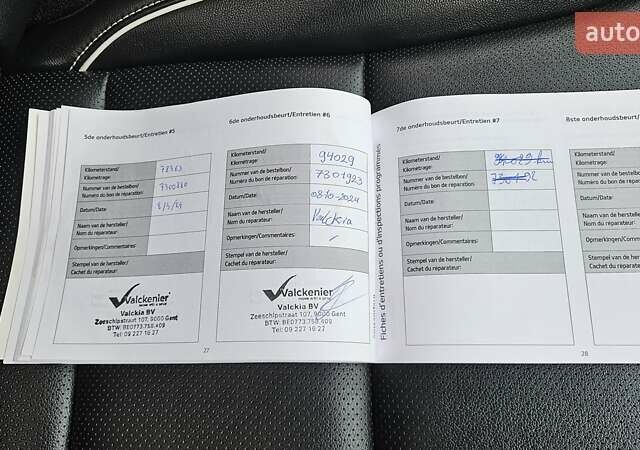 auto
5de onderhoudsbeurt/Entretien #5
Kilometerstand/
Kilométrage:
Nummer van de bestelbon/
Numéro du bon de réparation:
Datum/Date:
Naam van de hersteller/
Nom du réparateur:
Opmerkingen/Commentaires:
Stempel van de hersteller/
Cachet du réparateur:
Valckenier
Valckia BV
Zeeschipstraat 107, 9000 Gent
BTW: BE0773.758.409
Tel: 09 227 18 27
27
6de onderhoudsbeurt/Entretien #6
Kilometerstand/
Kilométrage:
94029
Nummer van de bestelbon/
Numéro du bon de réparation:
7301923
Datum/Date:
08-10-2024
Naam van de hersteller/
Nom du réparateur:
Valckia
Opmerkingen/Commentaires:
Stempel van de hersteller/
Cachet du réparateur:
Valckenier
Valckia BV
Zeeschipstraat 107, 9000 Gent
BTW: BE0773.758.409
Tel: 09 227 18 27
Fiches d'entretiens ou d'inspections programmées
7de onderhoudsbeurt/Entretien #7
Kilometerstand/
Kilométrage:
Nummer van de bestelbon/
Numéro du bon de réparation:
Datum/Date:
Naam van de hersteller/
Nom du réparateur:
Opmerkingen/Commentaires:
Stempel van de hersteller/
Cachet du réparateur:
28
8ste onderhoudsbeurt
Kilometerstand/
Kilométrage:
Nummer van de
Numéro du bon
Datum/Date:
Naam van de
Nom du répar
Opmerkingen
Stempel van
Cachet du r